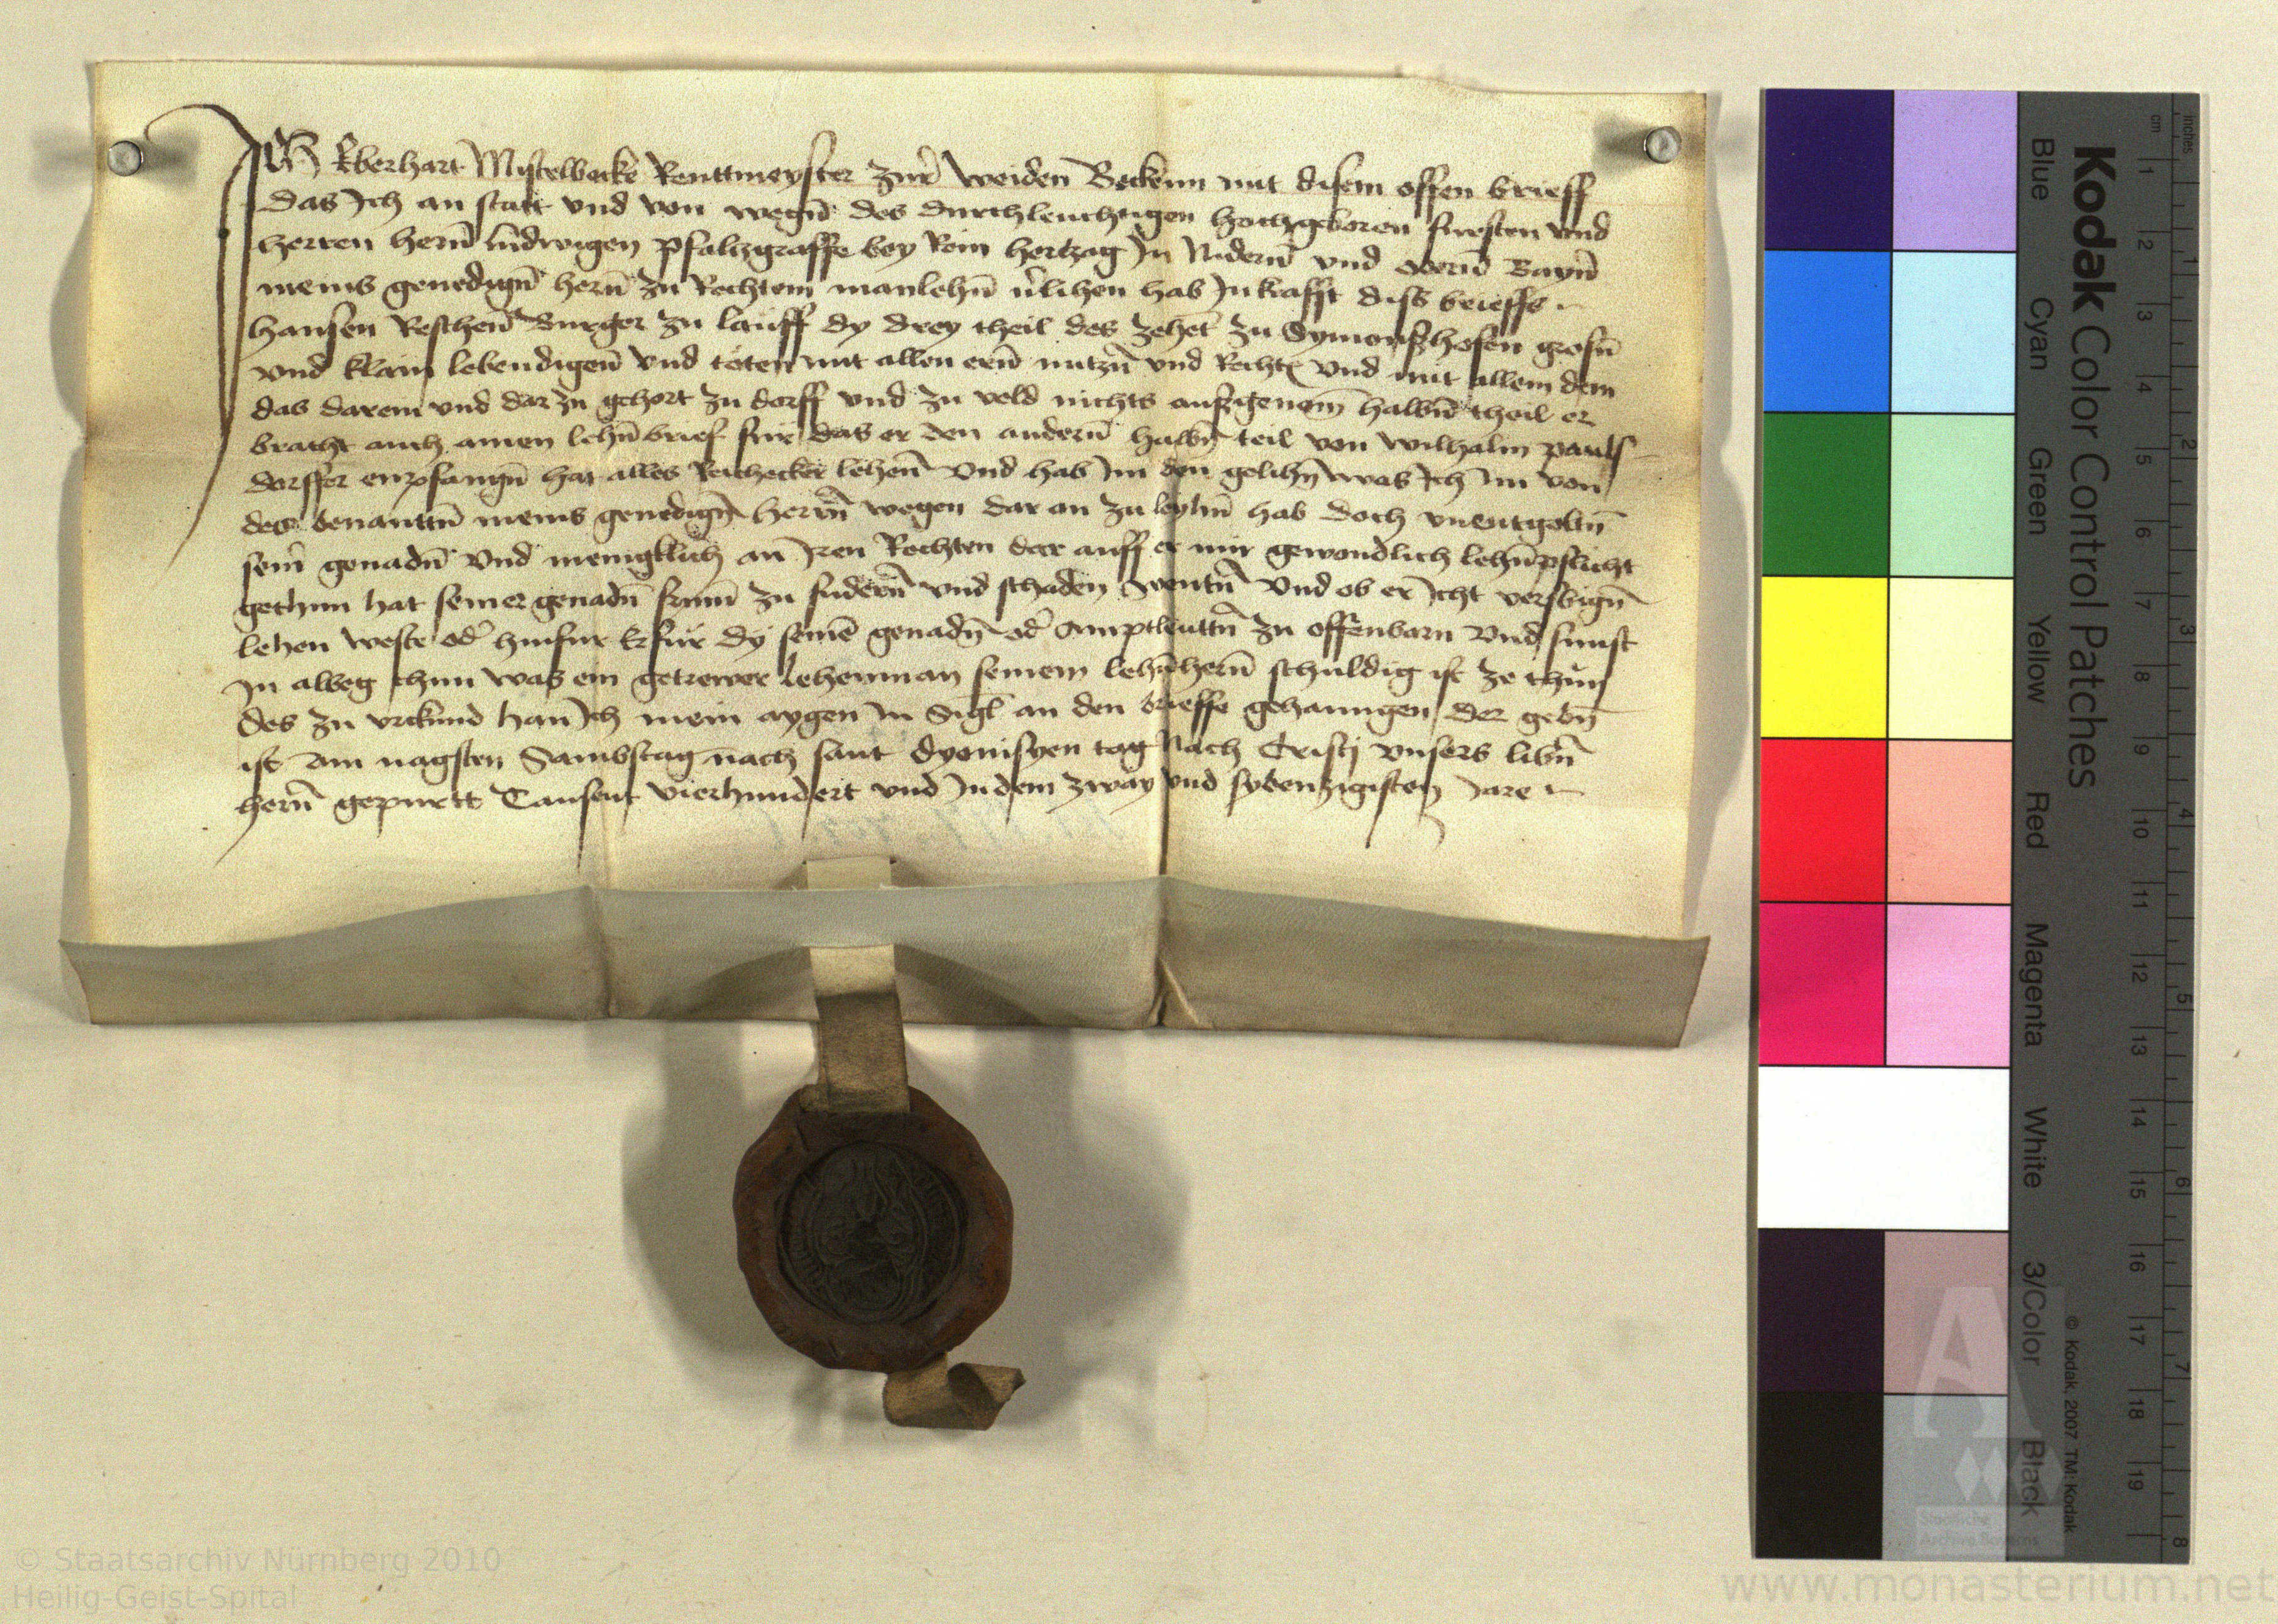 Ich Eberhart Mistelbecke Renttmeyster zur weiden Bekenn mit disem offen brieff
das Ich an statt vnd von wegn̄ des durchleuchtigen hochgeboren fursten vnd
herren hern̄ ludwigen pfaltzgraffe bey Rein hertzog In Nidern̄ vnd obern̄ Bayn̄
meins genedign̄ hern̄ zu Rechtem manlehn̄ v̉lihen hab In krafft diss brieffs
hansen Reschen̄ Burger zu lauff dy drey theil des zehet zu Symonßhofen grosn̄
vnd klain lebendigen̄ vnd töten mit allen ern̄ nutzn̄ vnd Recht vnd mit allem dem
das darein vnd dar zu gehort zu dorff vnd zu veld nichts außgenom̄ halbn̄ theil er
bracht auch ainen lehn̄brief fur das er den andern̄ halbn̄ teil von wilhalm pauls
dorffer enpfangn̄ hat alles Reichecker lehen̄ Vnd hab Im den gelihn̄ was Ich Im von
des benanttn̄ meins genedign̄ herrn̄ wegen dar an zu leyhn̄ hab doch vnentgoltn̄
sein̄ genadn̄ Vnd menigklich an Iren Rechten dar auff er mir gewondlich lehn̄pflicht
gethun hat seiner genadn̄ frum̄ zu fudern̄ vnd schaden wentn̄ Vnd ob er Icht verswign̄
lehen weste od̉ hinfur erfur dy seinē genadn̄ od̉ Amptleuttn̄ zu offenbarn Vnd sunst
In albeg thun was ein getrewer lehenman seinem lehn̄hern̄ schuldig ist ze thun
des zu vrckund han Ich mein aygen In Sigl an den brieffe gehanngen der gebn̄
ist Am nagsten Sambstag nach sant dyonisyen tag Nach Cristj vnsers libn̄
hern̄ gepurtt Tausent vierhundert vnd In dem zway vnd sybenzigisten Jare
Kodak Color Control Patches
Blue Cyan Green Yellow Red Magenta White 3/Color Black
© Kodak, 2007 TM: Kodak
cm 1 2 3 4 5 6 7 8 9 10 11 12 13 14 15 16 17 18 19
inches 1 2 3 4 5 6 7 8
Staatliche
Archive Bayerns
© Staatsarchiv Nürnberg 2010
Heilig-Geist-Spital
www.monasterium.net